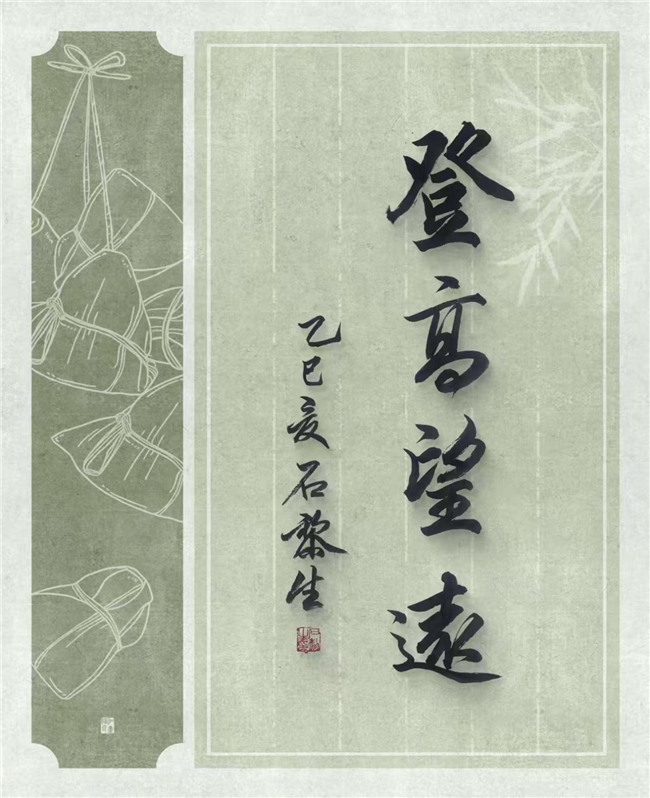 登高望遠
乙巳夏石黎生